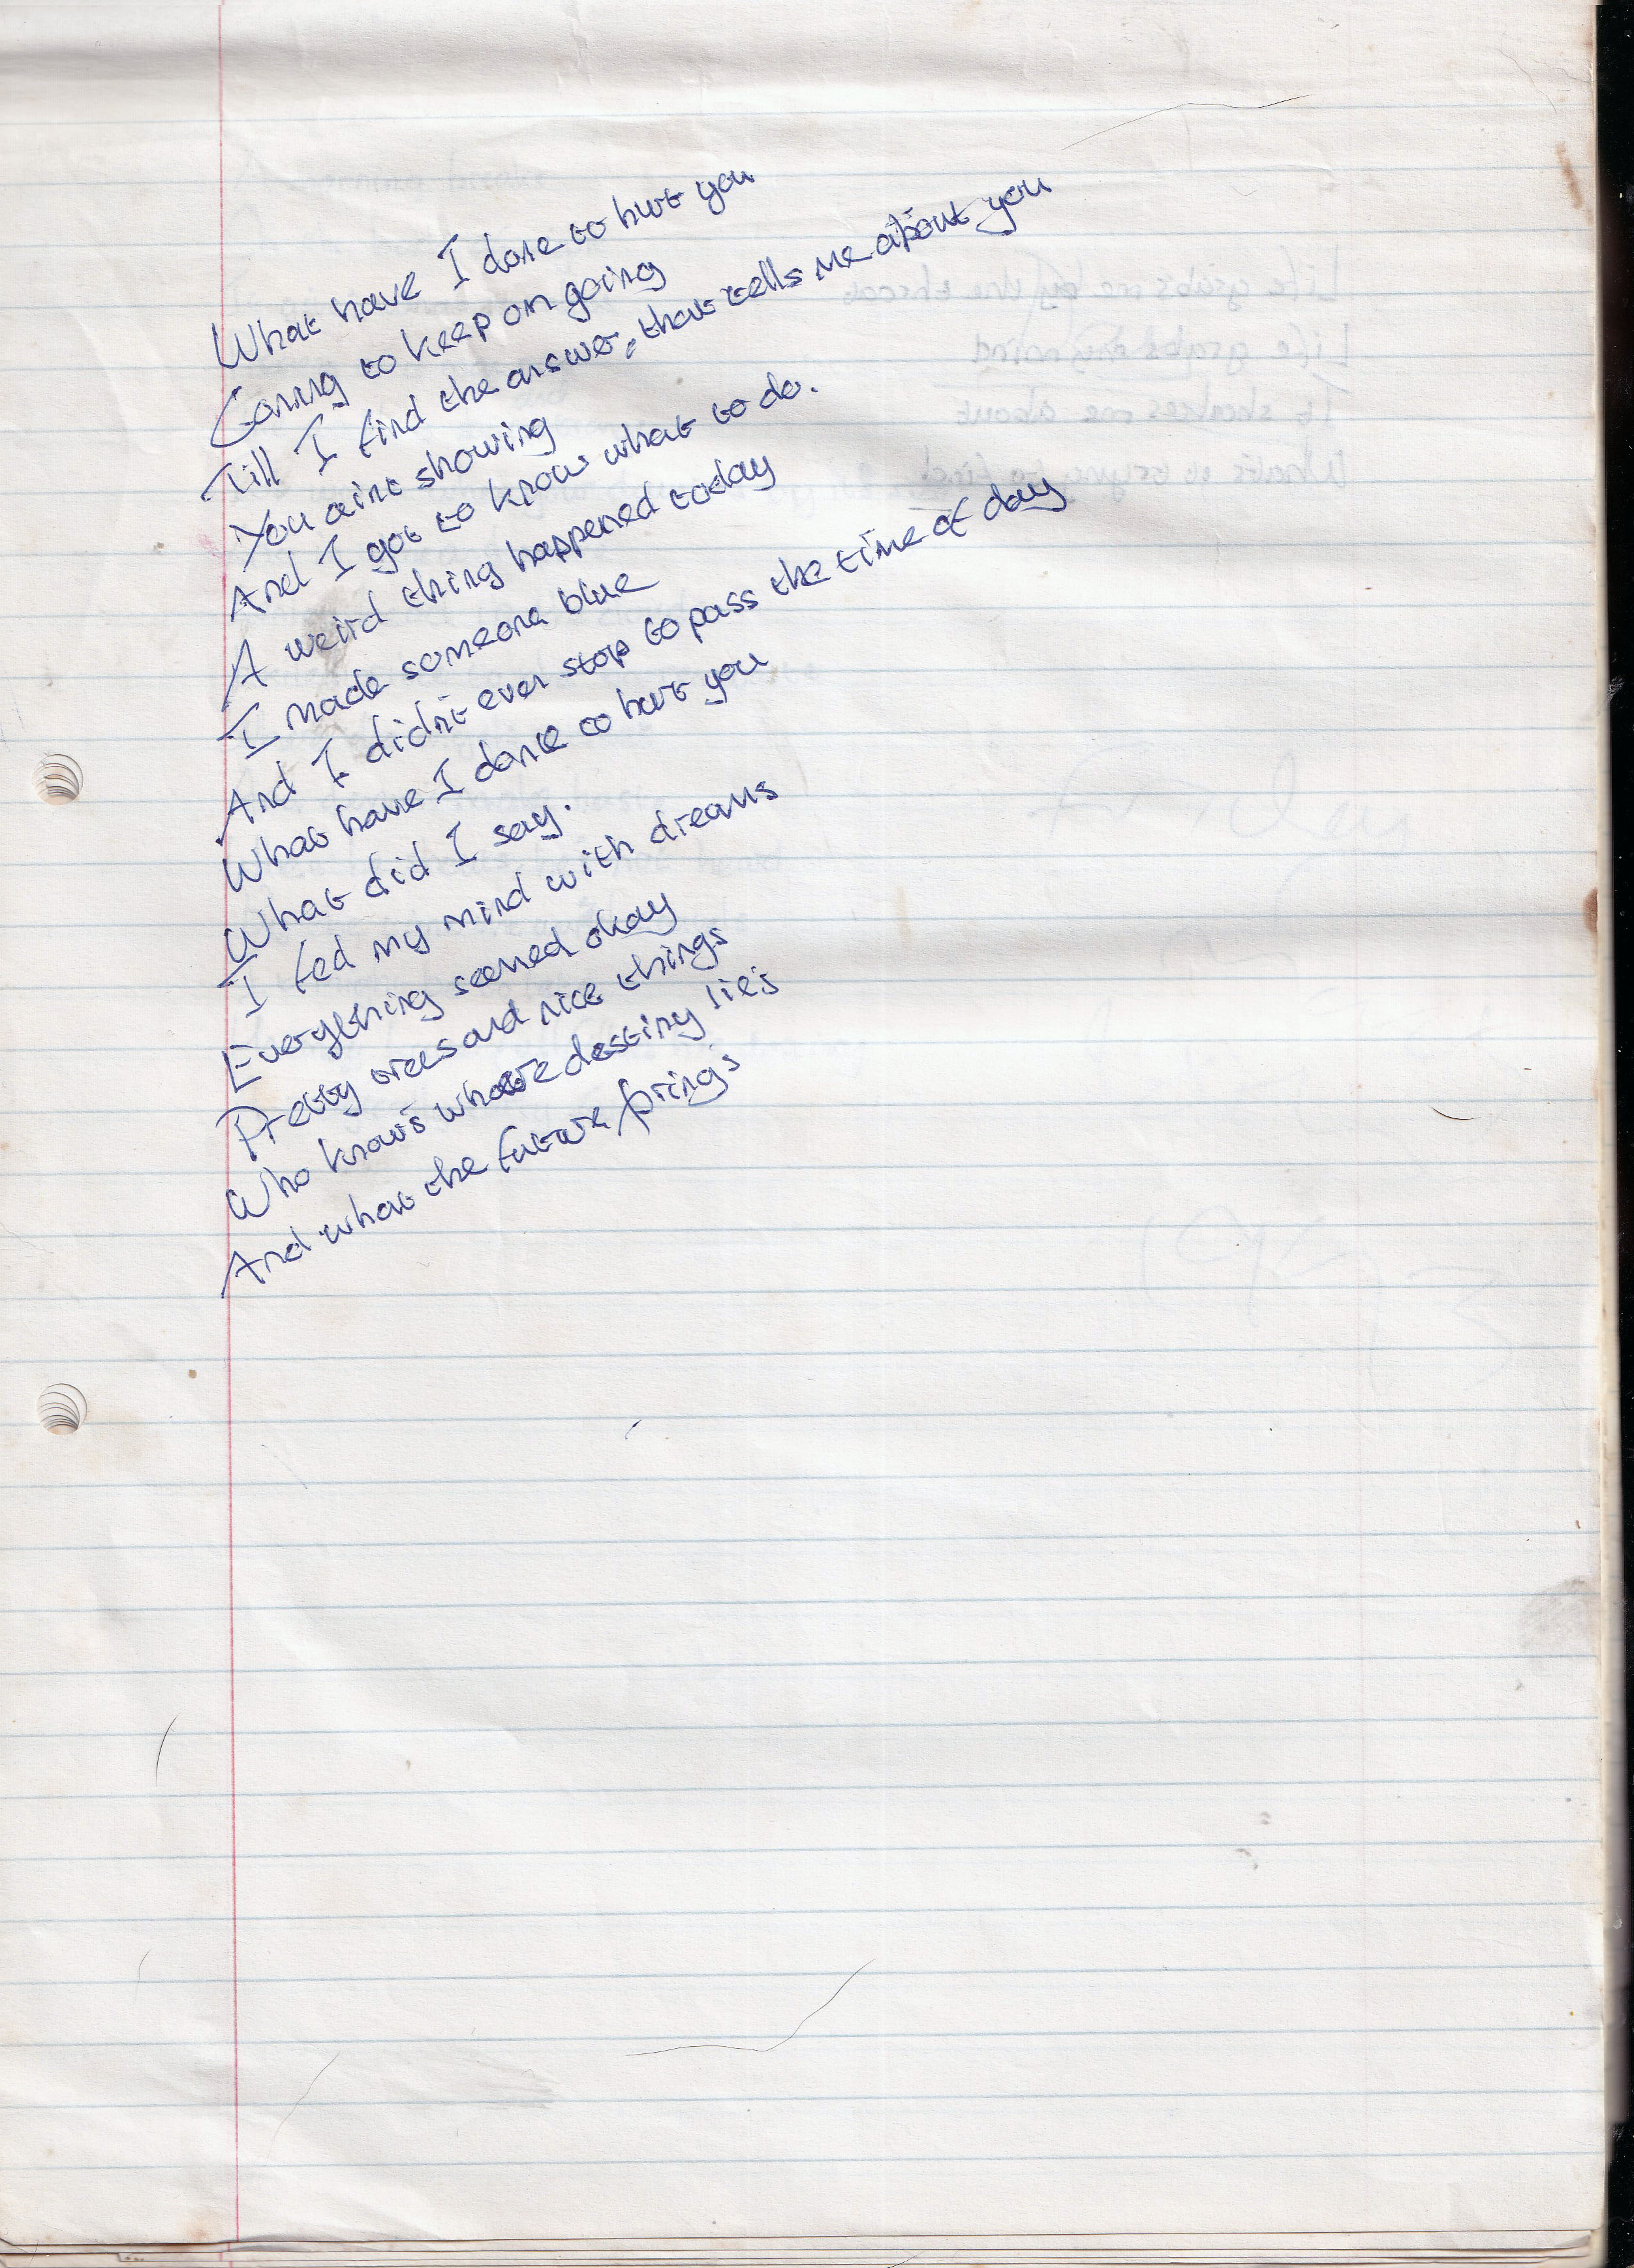 What have I done to hurt you
Goning to keep on going
Till I find the answer, that tells me about you
You aint showing
And I got to know what to do.
A weird thing happened today
I made someone blue
And I didn't even stop to pass the time of day
What have I done to hurt you
What did I say.
I fed my mind with dreams
Everything seemed okay
Pretty trees and nice things
Who knows where destiny lies
And what the future brings
Life grabs me by the throat
Life grabs my mind
It shakes me about